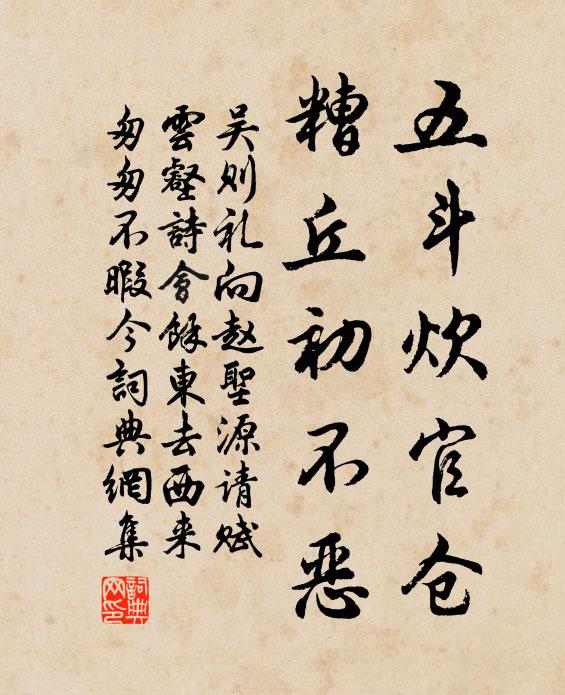 五斗炊官仓
糟丘初不恶
吴则礼向赵聖源请赋
雲壑詩會餘東去西来
匆匆不暇今詞典網集
詞典网印